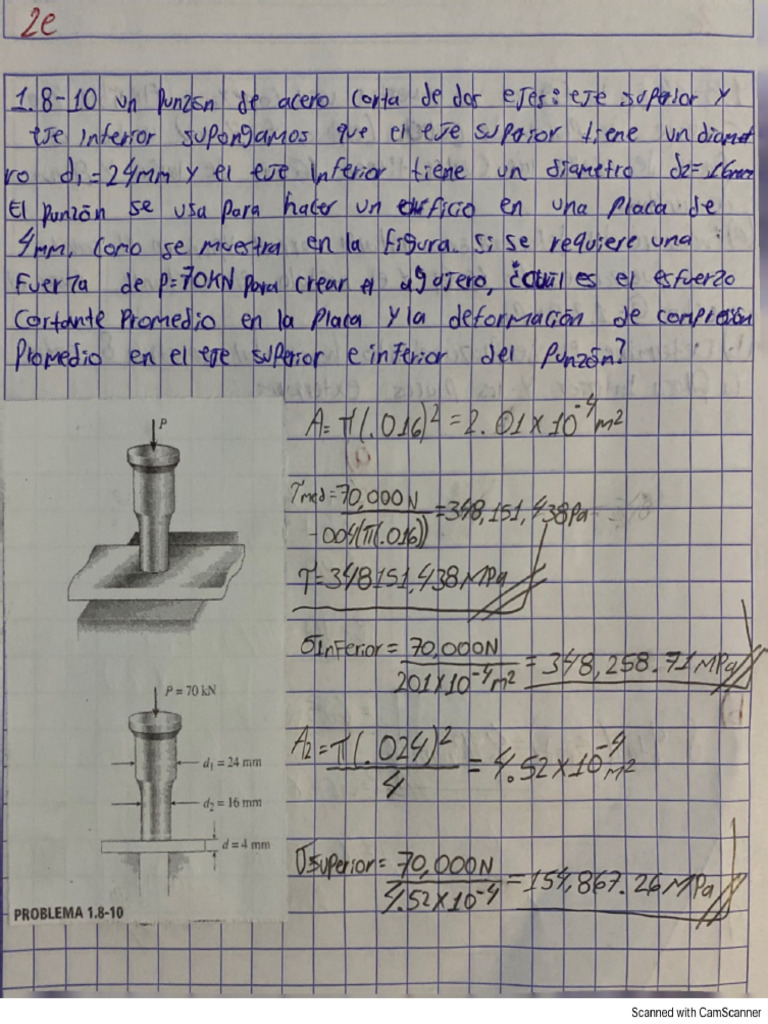 2e
1.8-10 un punzón de acero corta de dos ejes: eje superior y
eje inferior supongamos que el eje superior tiene un diamet
ro d₁=24mm y el eje inferior tiene un diametro d2=16mm
El punzón se usa para hacer un orificio en una placa de
4mm, como se muestra en la figura. Si se requiere una
fuerza de P=70KN para crear el agujero, ¿cuál es el esfuerzo
cortante promedio en la placa y la deformación de compresión
promedio en el eje superior e inferior del punzón?
P
A=π(.016)²=2.01x10⁻⁴m²
τmed=70,000N/.004(π(.016))=348,151,438Pa
τ=348151,438MPa
σinferior=70,000N/201x10⁻⁴m²=348,258.71MPa
P = 70 kN
d₁ = 24 mm
d₂ = 16 mm
d = 4 mm
A₂=π(.024)²/4=4.52x10⁻⁴m²
σsuperior=70,000N/4.52x10⁻⁴=154,867.26MPa
PROBLEMA 1.8-10
Scanned with CamScanner